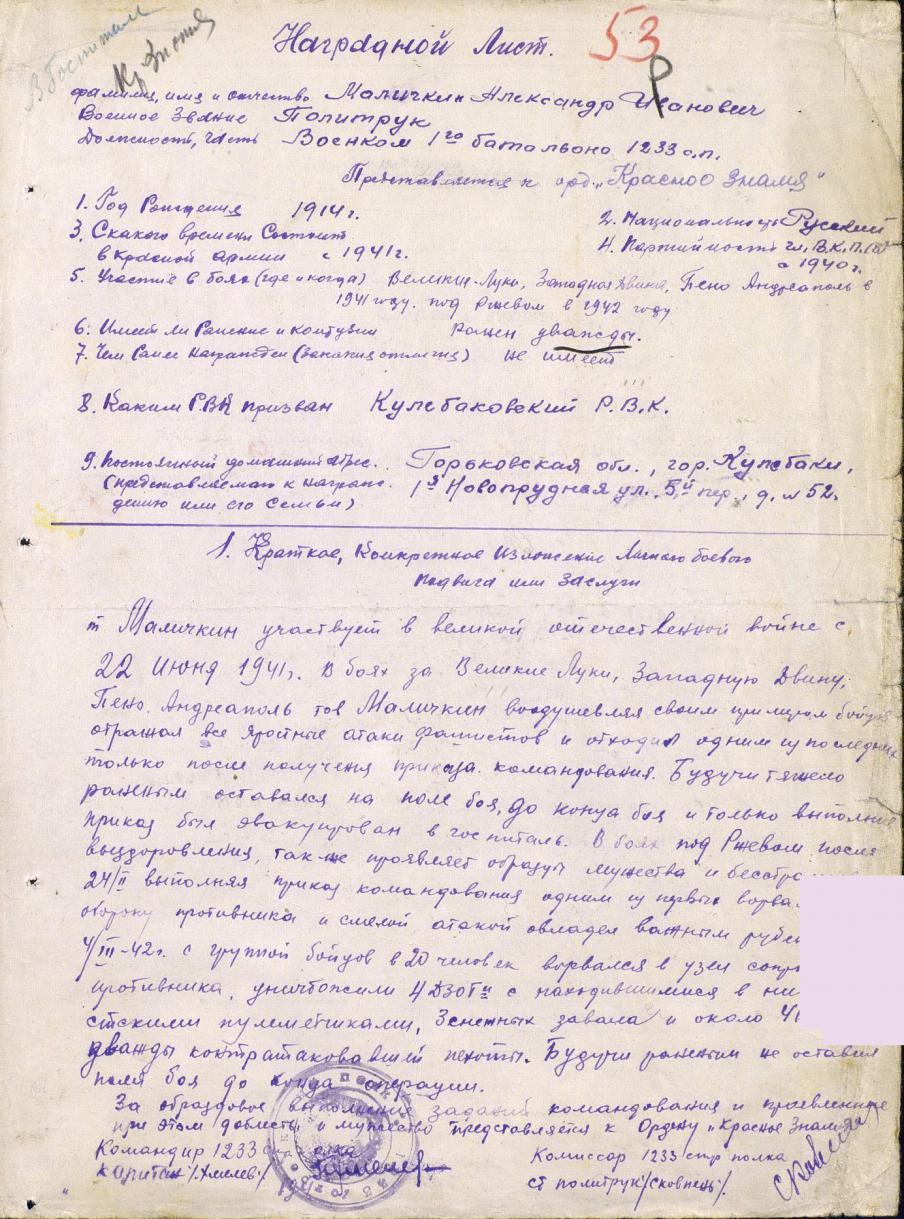 В Госпитале
Кр Знамя
Наградной Лист.
53
фамилия, имя и отчество Маличкин Александр Иванович
Военное Звание Политрук
Должность, часть Военком 1го батальона 1233 с.п.
Представляется к орд. „Красное Знамя"
1. Год Рождения 1914 г.
2. Национальность Русский
3. С какого времени Состоит
в Красной армии с 1941 г.
4. Партийность чл. В.К.П.(б)
с 1940 г.
5. Участие в боях (где и когда) Великие Луки, Западная Двина, Пено Андреаполь в
1941 году. под Ржевом в 1942 году
6. Имеет ли Ранение и контузии Ранен дважды.
7. Чем Ранее награжден (за какие отличия) не имеет
8. Каким Р.В.К призван Кулебаковский Р.В.К.
9. постоянный домашний адрес. Горьковская обл., гор. Кулебаки,
(представляемого к награж- 1я Новопрудная ул., 5й пер., д. № 52.
дению или его Семьи)
1. Краткое, Конкретное Изложение Личного боевого
подвига или заслуги
т Маличкин участвует в великой отечественной войне с
22 Июня 1941 г. В боях за Великие Луки, Западную Двину,
Пено. Андреаполь тов Маличкин воодушевляя своим примером бойцов
отражал все яростные атаки фашистов и отходил одним из последних
только после получения приказа командования. Будучи тяжело
раненым оставался на поле боя, до конца боя и только выполнив
приказ был эвакуирован в госпиталь. В боях под Ржевом после
выздоровления, так-же проявляет образцы мужества и бесстра
24/II выполняя приказ командования одним из первых ворва
оборону противника и смелой атакой овладел важным рубе
4/III-42г. с группой бойцов в 20 человек ворвался в узел сопр
противника, уничтожили 4 ДЗОТа с находившимися в ни
стскими пулеметчиками, 3 снежных завала и около 4
дважды контратаковавшей пехоты. Будучи раненым не оставил
поля боя до конца операции.
За образцовое выполнение заданий командования и проявленные
при этом доблесть и мужество представляется к Ордену „Красное Знамя"
Командир 1233 с полка
капитан /Хмелев/
Комиссар 1233 стр полка
ст политрук /Сковпень/.